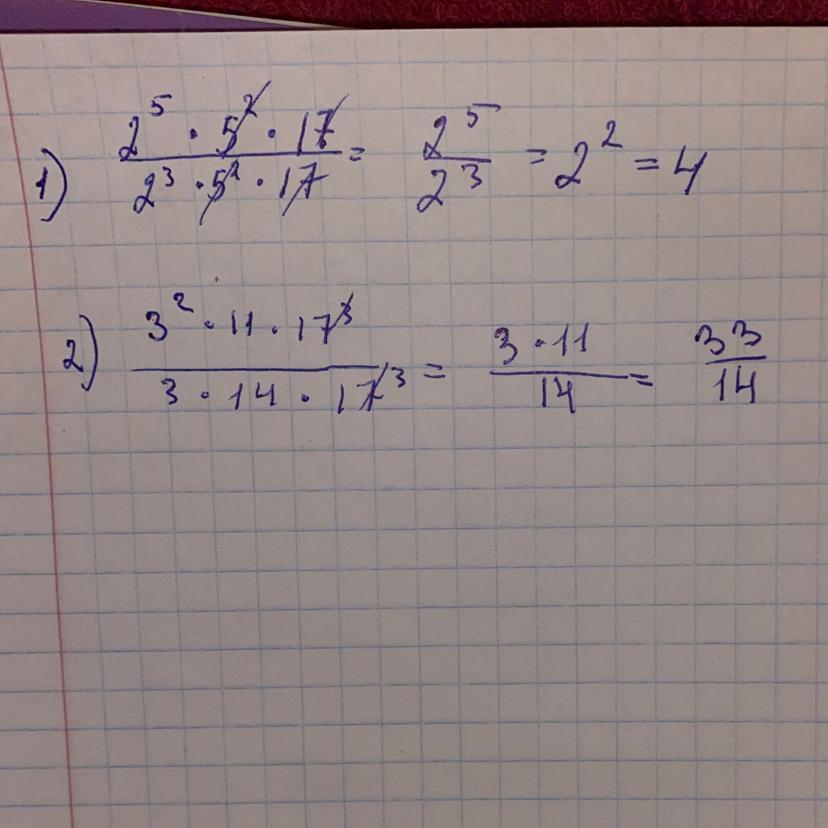 1) (2^5 · 5^2 · 17) / (2^3 · 5^2 · 17) = 2^5 / 2^3 = 2^2 = 4
2) (3^2 · 11 · 17^3) / (3 · 14 · 17^3) = (3 · 11) / 14 = 33 / 14